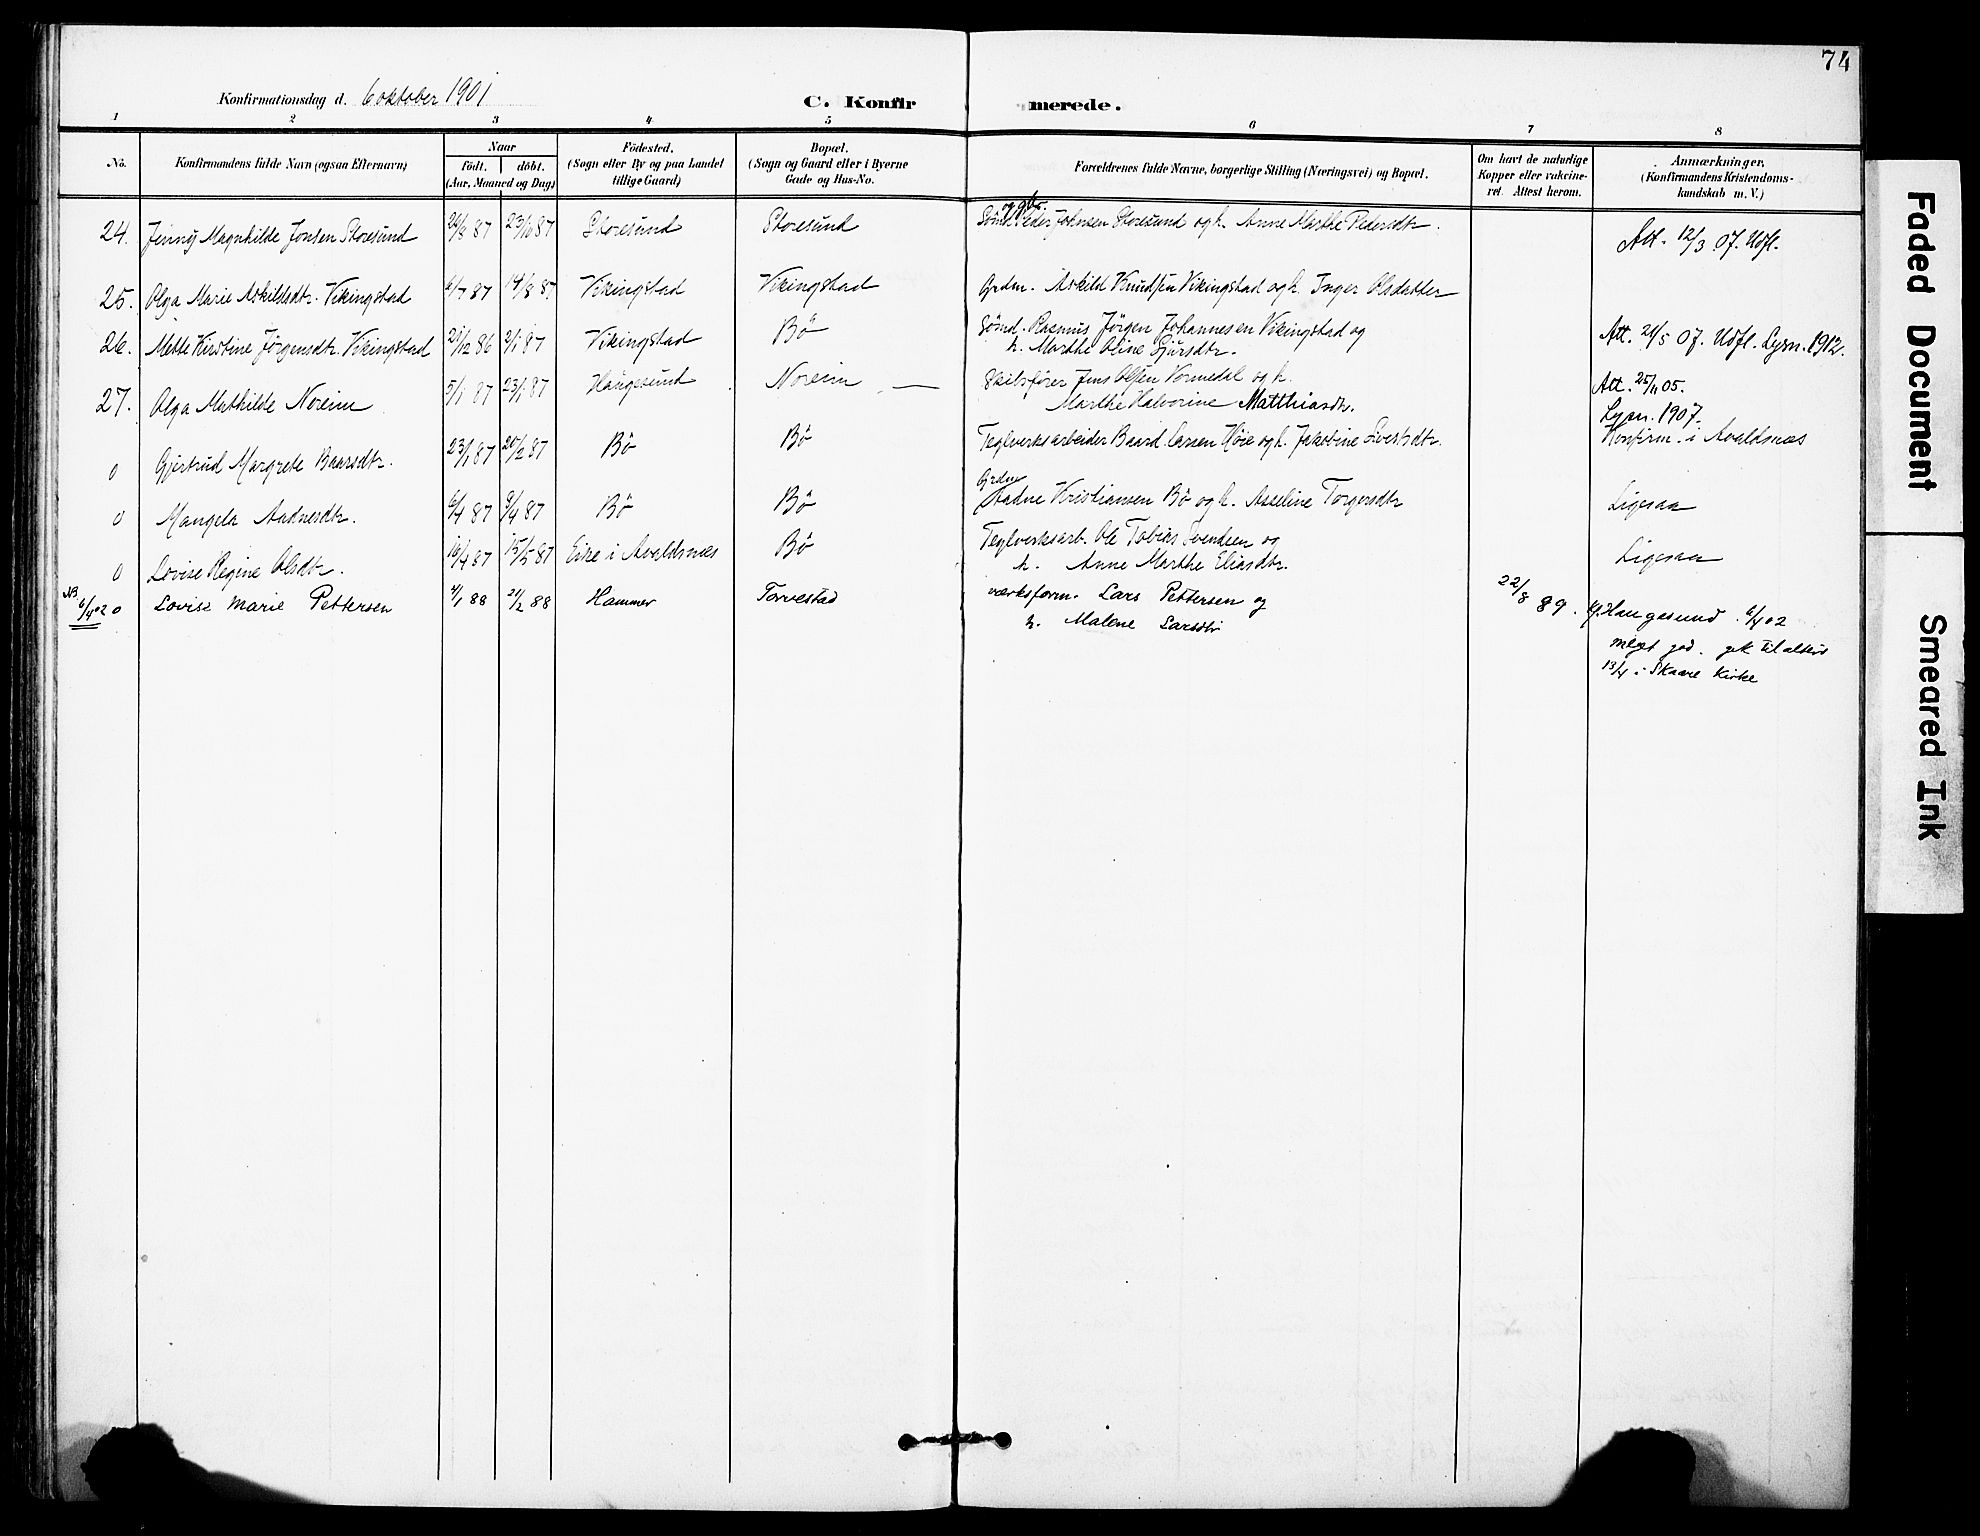 74
Konfirmationsdag d. 6 oktober 1901
C. Konfirmerede.
1 2 3 4 5 6 7 8
No. Konfirmandens fulde Navn (ogsaa Efternavn) Naar födt. döbt. (Aar, Maaned og Dag) Födested. (Sogn eller By og paa Landet tillige Gaard) Bopæl. (Sogn og Gaard eller i Byerne Gade og Hus-No. Forældrenes fulde Navne, borgerlige Stilling (Næringsvei) og Bopæl. Om havt de naturlige Kopper eller vakcineret. Attest herom. Anmærkninger. (Konfirmandens Kristendomskundskab m. V.)
24. Jenny Magnhilde Jonsen Storesund 87 23/10 87 Storesund Storesund Sömd. og gbr. Peder Johnsen Storesund og h. Anne Marthe Pedersdtr. Att. 12/3 07. Udfl.
25. Olga Marie Askildsdtr. Vikingstad 6/7 87 14/8 87 Vikingstad Vikingstad Grdm. Askild Knudsen Vikingstad og h. Inger Olsdatter
26. Mette Kirstine Jørgensdtr. Vikingstad 21/12 86 2/1 87 Vikingstad Bö Sömd. Rasmus Jörgen Johannesen Vikingstad og Att. 21/5 07. Udfl. Lysn. 1912.
h. Marthe Oline Sjursdtr.
27. Olga Mathilde Noreim 5/1 87 23/1 87 Haugesund Noreim — Skibsfører Jens Olsen Vormedal og h. Att. 25/11 05.
Marthe Halvorine Matthiasdtr. Lysn. 1907.
0 Gjertrud Margrete Baarsdtr. 23/1 87 20/2 87 Bö Bö Teglverksarbeider Baard Larsen Høie og h. Jakobine Sivertsdtr. Konfirm. i Avaldsnæs
0 Mangela Aadnesdtr. 6/4 87 9/4 87 Bö Bö Grdm Aadne Kristiansen Bö og h. Asseline Torgersdtr Ligesaa
0 Lovise Regine Olsdtr. 16/4 87 15/5 87 Eike i Avaldsnæs Bö Teglverksarb. Ole Tobias Svendsen og Ligesaa
h. Anne Marthe Eliasdtr.
NB 6/4 02 0 Lovise Marie Pettersen 4/1 88 21/2 88 Hammer Torvestad værksform. Lars Pettersen og 22/8 89. Haugesund 6/4 02
h. Malene Larsdtr meget god. gik til alters
13/4 i Skaare Kirke
Faded Document
Smeared Ink